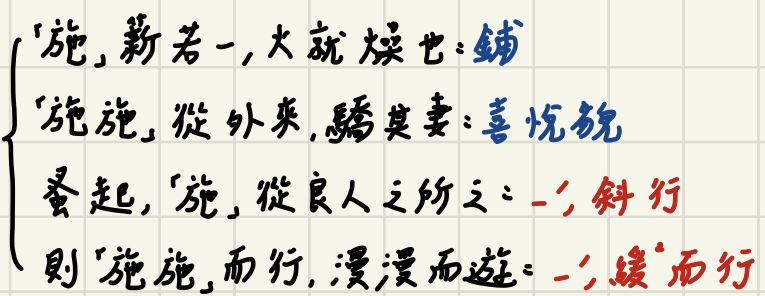 「施」薪若一,火就燥也:鋪
「施施」從外來,驕其妻:喜悅貌
蚤起,「施」從良人之所之:ㄧˊ,斜行
則「施施」而行,漫漫而遊:ㄧˊ,緩而行